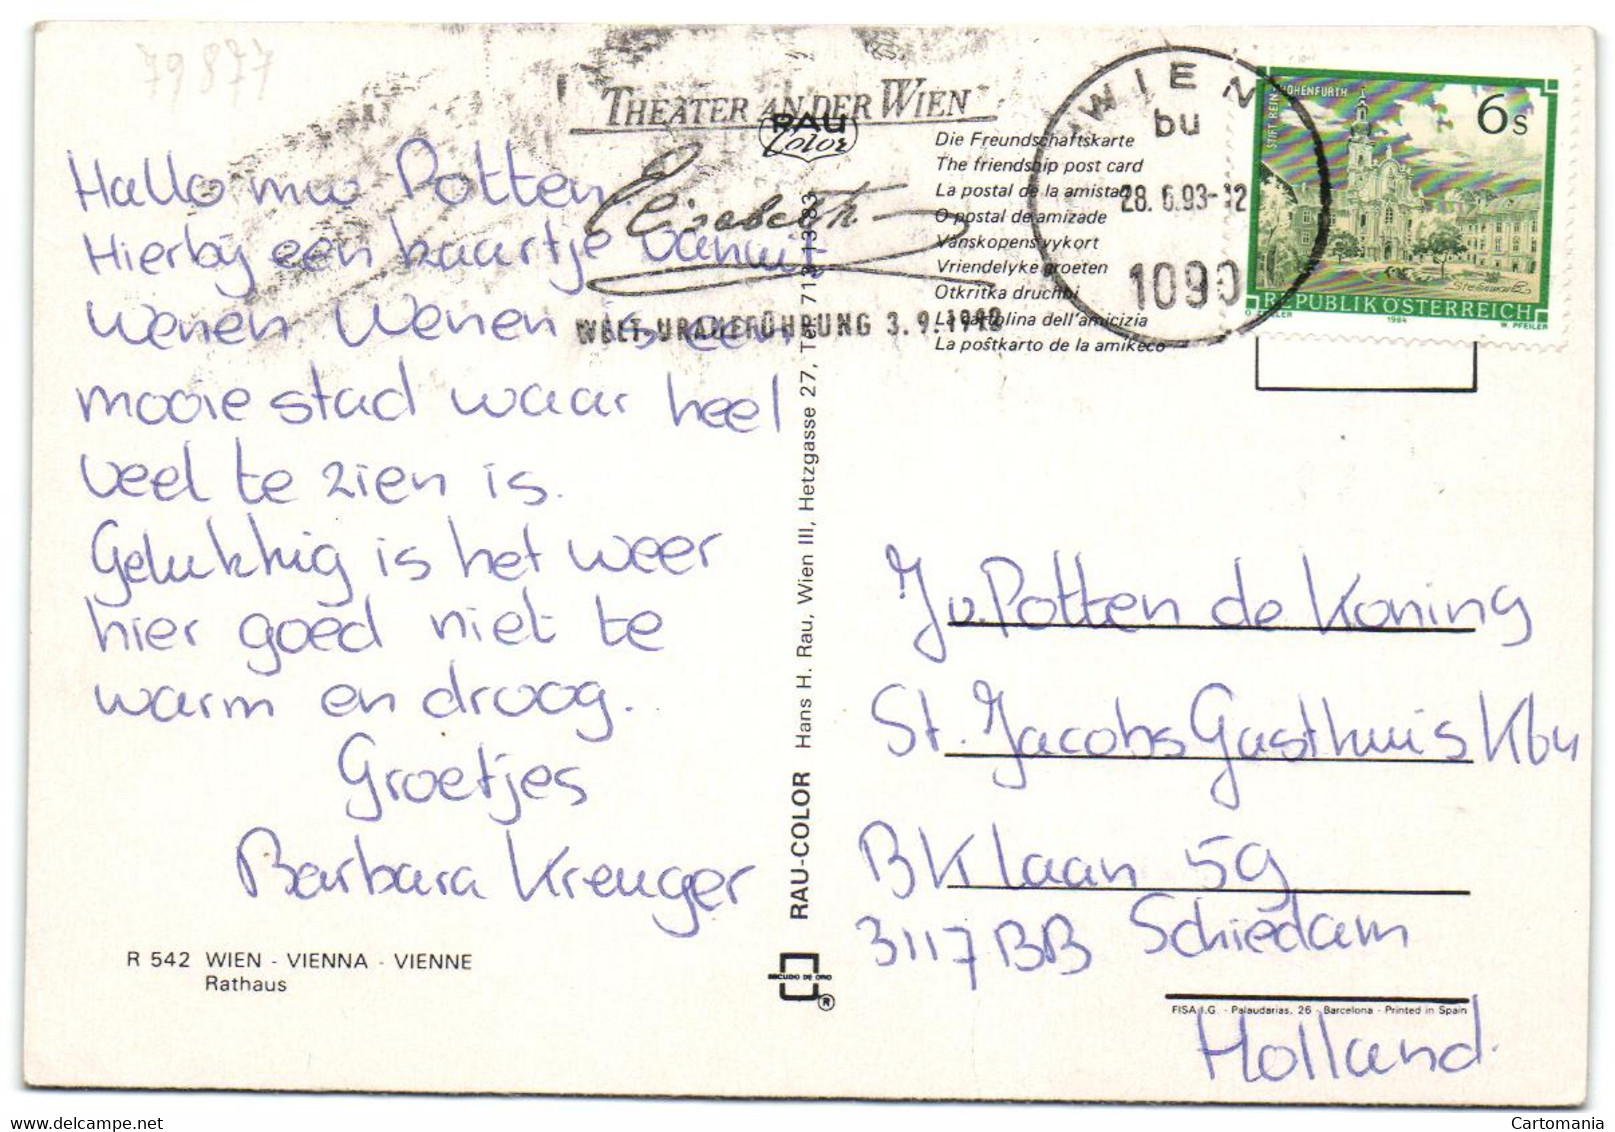 79877
THEATER AN DER WIEN
RAU
Color
Elisabeth
WELT-URAUFFÜHRUNG 3.9.1992
WIEN
bu
28. 6.93-12
1090
STIFT REIN-HOHENFURTH
6s
REPUBLIK ÖSTERREICH
1984
W. PFEILER
Die Freundschaftskarte
The friendship post card
La postal de la amistad
O postal de amizade
Vänskopens vykort
Vriendelyke groeten
Otkritka druchbi
La cartolina dell'amicizia
La poŝtkarto de la amikeco
Hallo mw Potten
Hierbij een kaartje vanuit
Wenen Wenen is een
mooie stad waar heel
veel te zien is.
Gelukkig is het weer
hier goed niet te
warm en droog.
Groetjes
Barbara Kreuger
R 542 WIEN - VIENNA - VIENNE
Rathaus
RAU-COLOR Hans H. Rau, Wien III, Hetzgasse 27, Tel. 713 13 83
ESCUDO DE ORO
®
J v. Potten de Koning
St. Jacobs Gasthuis K64
BK laan 59
3117 BB Schiedam
FISA I.G. - Palaudarias, 26 - Barcelona - Printed in Spain
Holland.
Cartomania